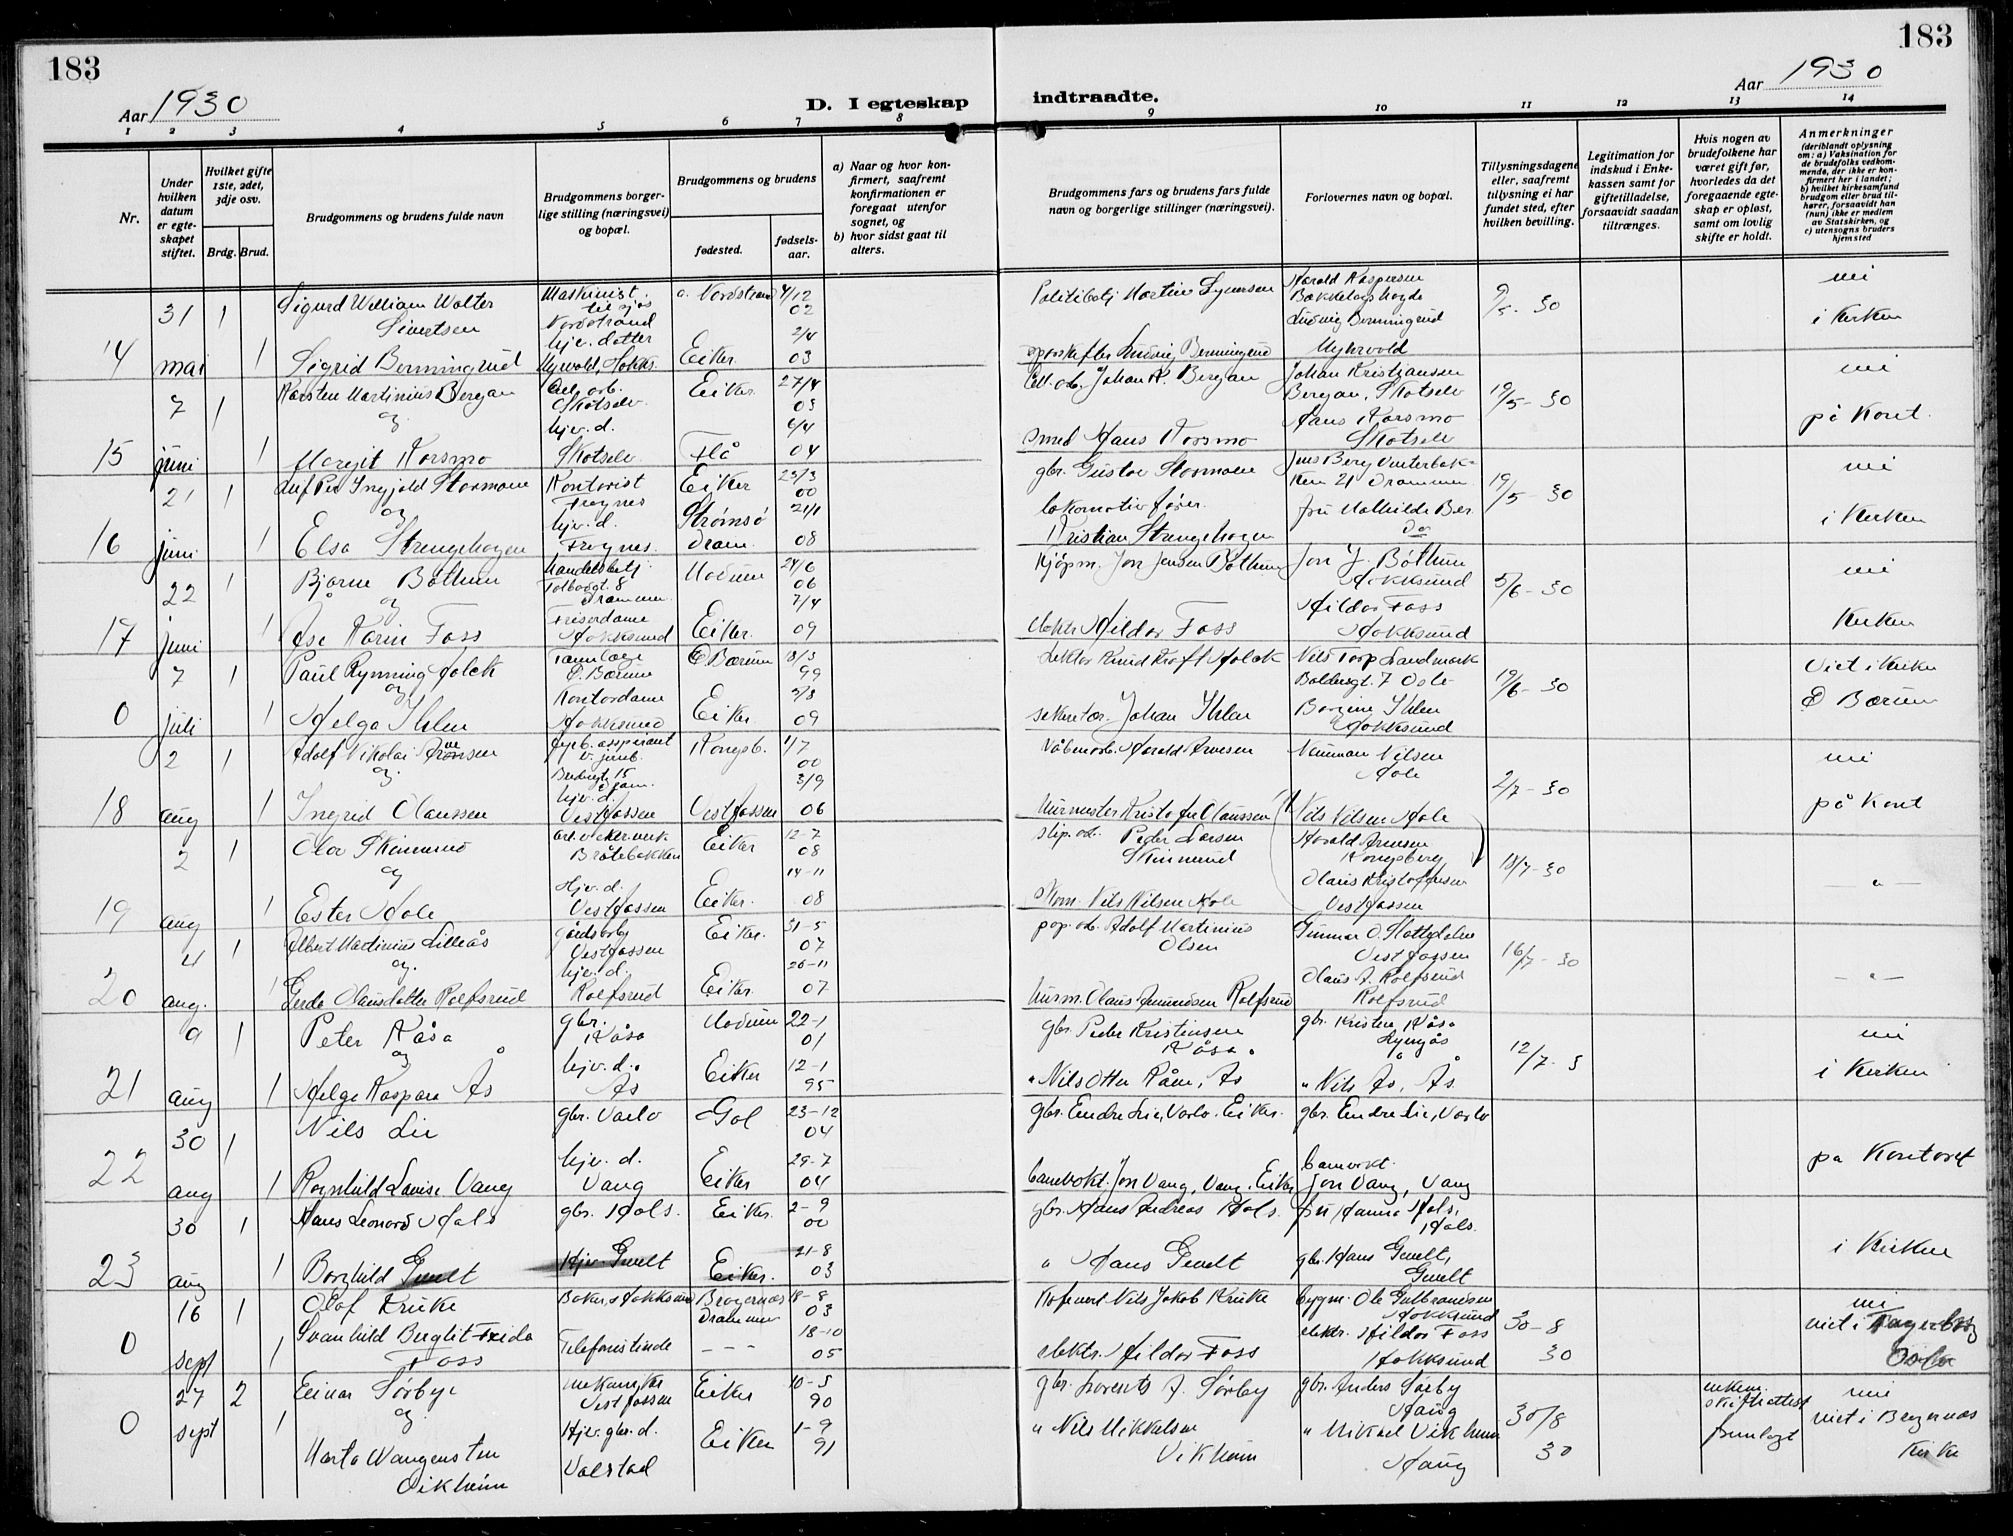 183
183
Aar 1930
D. I egteskap
indtraadte.
Aar 1930
1 2 3 4 5 6 7 8 9 10 11 12 13 14
Nr.
Under hvilken datum er egteskapet stiftet.
Hvilket gifte 1ste, 2det, 3dje osv.
Brdg. Brud.
Brudgommens og brudens fulde navn
Brudgommens borgerlige stilling (næringsvei) og bopæl.
Brudgommens og brudens
fødested.
fødselsaar.
a) Naar og hvor konfirmert, saafremt konfirmationen er foregaat utenfor sognet, og
b) hvor sidst gaat til alters.
Brudgommens fars og brudens fars fulde navn og borgerlige stillinger (næringsvei).
Forlovernes navn og bopæl.
Tillysningsdagene eller, saafremt tillysning ei har fundet sted, efter hvilken bevilling.
Legitimation for indskud i Enkekassen samt for giftetilladelse, forsaavidt saadan tiltrænges.
Hvis nogen av brudefolkene har været gift før, hvorledes da det foregaaende egteskap er opløst, samt om lovlig skifte er holdt.
Anmerkninger
(deriblandt oplysning om: a) Vaksination for de brudefolks vedkommende, der ikke er konfirmert her i landet; b) hvilket kirkesamfund brudgom eller brud tilhører, forsaavidt han (hun) ikke er medlem av Statskirken, og c) utensogns bruders hjemsted
31 1 Sigurd William Walter Maskinist til sjøs Nordstrand 4/12 02
Sivertsen Nordstrand
14 mai 1 Sigrid Bermingrud hjv. datter Eiker 2/4 03
Harald Kaspersen
Ludvig Bermingrud
Myhrvold
9/5 - 30 nei
i kirken
7 1 Karsten Martinius Bergan Skotselv Eiker 27/4 03
og
15 juni 1 Margit Korsmo hjv. d. Skotselv Flå 6/4 04
Cell. arb. Johan K. Bergan Johan Kristiansen
Bergan, Skotselv 19/5 - 30 nei
smed Hans Korsmo Hans Korsmo
Skotselv på kont.
21 1 Stormoen Kontorist Eiker 23/3 00
og Frognes
16 juni 1 Elsa Strengehagen hjv. d. Frognes Strømsø Dram. 21/1 08
gbr. Gustav Stormoen
Drammen 19/5 - 30 nei
lokomotivfører fru Mathilde Ber
Kristian Strengehagen i kirken
22 1 Bjarne Bøthun Drammen Modum 24/6 06
og
17 juni 1 Åse Karin Foss Frisørdame Hokksund Eiker 7/4 09
Kjøpm. Jon Jensen Bøthun Jon J. Bøthun
Hokksund 5/6 - 30 nei
elektr. Hildor Foss Hildor Foss
Hokksund Kirken
7 1 Paul Rynning Holck Tannlæge Ø. Bærum Ø Bærum 18/3 99
og
0 juli 1 Helga Ihlen Kontordame Hokksund Eiker 5/8 09
Lektor Knud Kraft Holck Nils Torp Landmark
Baldersgt. 7 Oslo 19/6 - 30 Viet i kirke
Ø Bærum
sekretær Johan Ihlen Ihlen
Hokksund
2 1 Adolf Nikolai Arnesen Kongsb. 1/7 00
og.
18 aug 1 Ingrid Olaussen hjv. d. Vestfossen Vestfossen 3/9 06
Våbenarb. Harald Arnesen Neuman Nilsen
Hole 2/7 - 30 nei
Murmester Kristofer Olaussen Nils Nilsen Hole på kont
2 1 Olav Skinnerud Bråtebakken Eiker 12-7 08
og
19 aug 1 Ester Hole Hjv. d. Vestfossen Eiker 14-11 08
slip. arb. Peder Larsen
Skinnerud Harald Arnesen
Kongsberg 18/7 - 30
Nils Nilsen Hole Olaus Kristoffersen
Vestfossen — " —
4 1 Albert Martinius Lilleås gårdsarb. Vestfossen Eiker. 31-5 07
og.
20 aug. 1 Gerda Olausdatter Rolfsrud hjv. d. Rolfsrud Eiker 26-11 07
pap. arb. Adolf Martinius
Olsen Gunnar O.
Vestfossen 16/7 - 30
Murm. Olaus Amundsen Rolfsrud Olaus A. Rolfsrud
Rolfsrud — " —
9 1 Peter Kåsa gbr. Kåsa Modum 22-1 01
og
21 aug 1 Helga Kaspara Ås hjv. d. Ås Eiker 12-1 95
gbr. Peder Kristensen
Kåsa. gbr. Kristen Kåsa
12/7 - 3 nei
" Nils Otter Råen, Ås " Nils Ås, Ås i kirken
30 1 Nils Lie gbr. Varlo Gol 23-12 04
22 aug 1 Ragnhild Lovise Vang hjv. d. Vang Eiker 29-7 04
gbr. Endre Lie, Varlo. Eiker. gbr. Endre Lie, Varlo
Jon Vang, Vang, Eiker Jon Vang, Vang på kontoret
30 1 Hans Leonard Hals gbr. Hals. Eiker 2-9 00
23 aug 1 Borghild Gunelt Hjv. Gunelt Eiker. 21-8 03
gbr. Hans Andreas Hals. fru Hanna Hals,
Hals.
" Hans Gunelt gbr. Hans Gunelt,
Gunelt i kirken
16 1 Olaf Kruke Baker, Hokksund Bragernæs Drammen 18-8 03
0 sept 1 Svanhild Berglit Frida
Foss Telefonistinde - - - 18-10 05
Nils Jakob Kruke bygm. Ole Gulbrandsen
Hokksund 30-8 30 nei
elektr. Hildor Foss elektr. Hildor Foss
Hokksund viet i Fagerborg
Oslo
27 2 Einar Sørbye Vestfossen Eiker 10-5 90
og.
0 sept 1 Marta Wangensten
Vikheim Hjv. gbr. d.
Valstad Eiker 1-9 91
gbr. Lorents A. Sørby gbr. Anders Sørby
Haug 30/8 30 enkem. skifteattest fremlagt nei
" Nils Mikkelsen
Vikheim " Mikael Vikheim
Haug viet i Bragernæs
Kirke